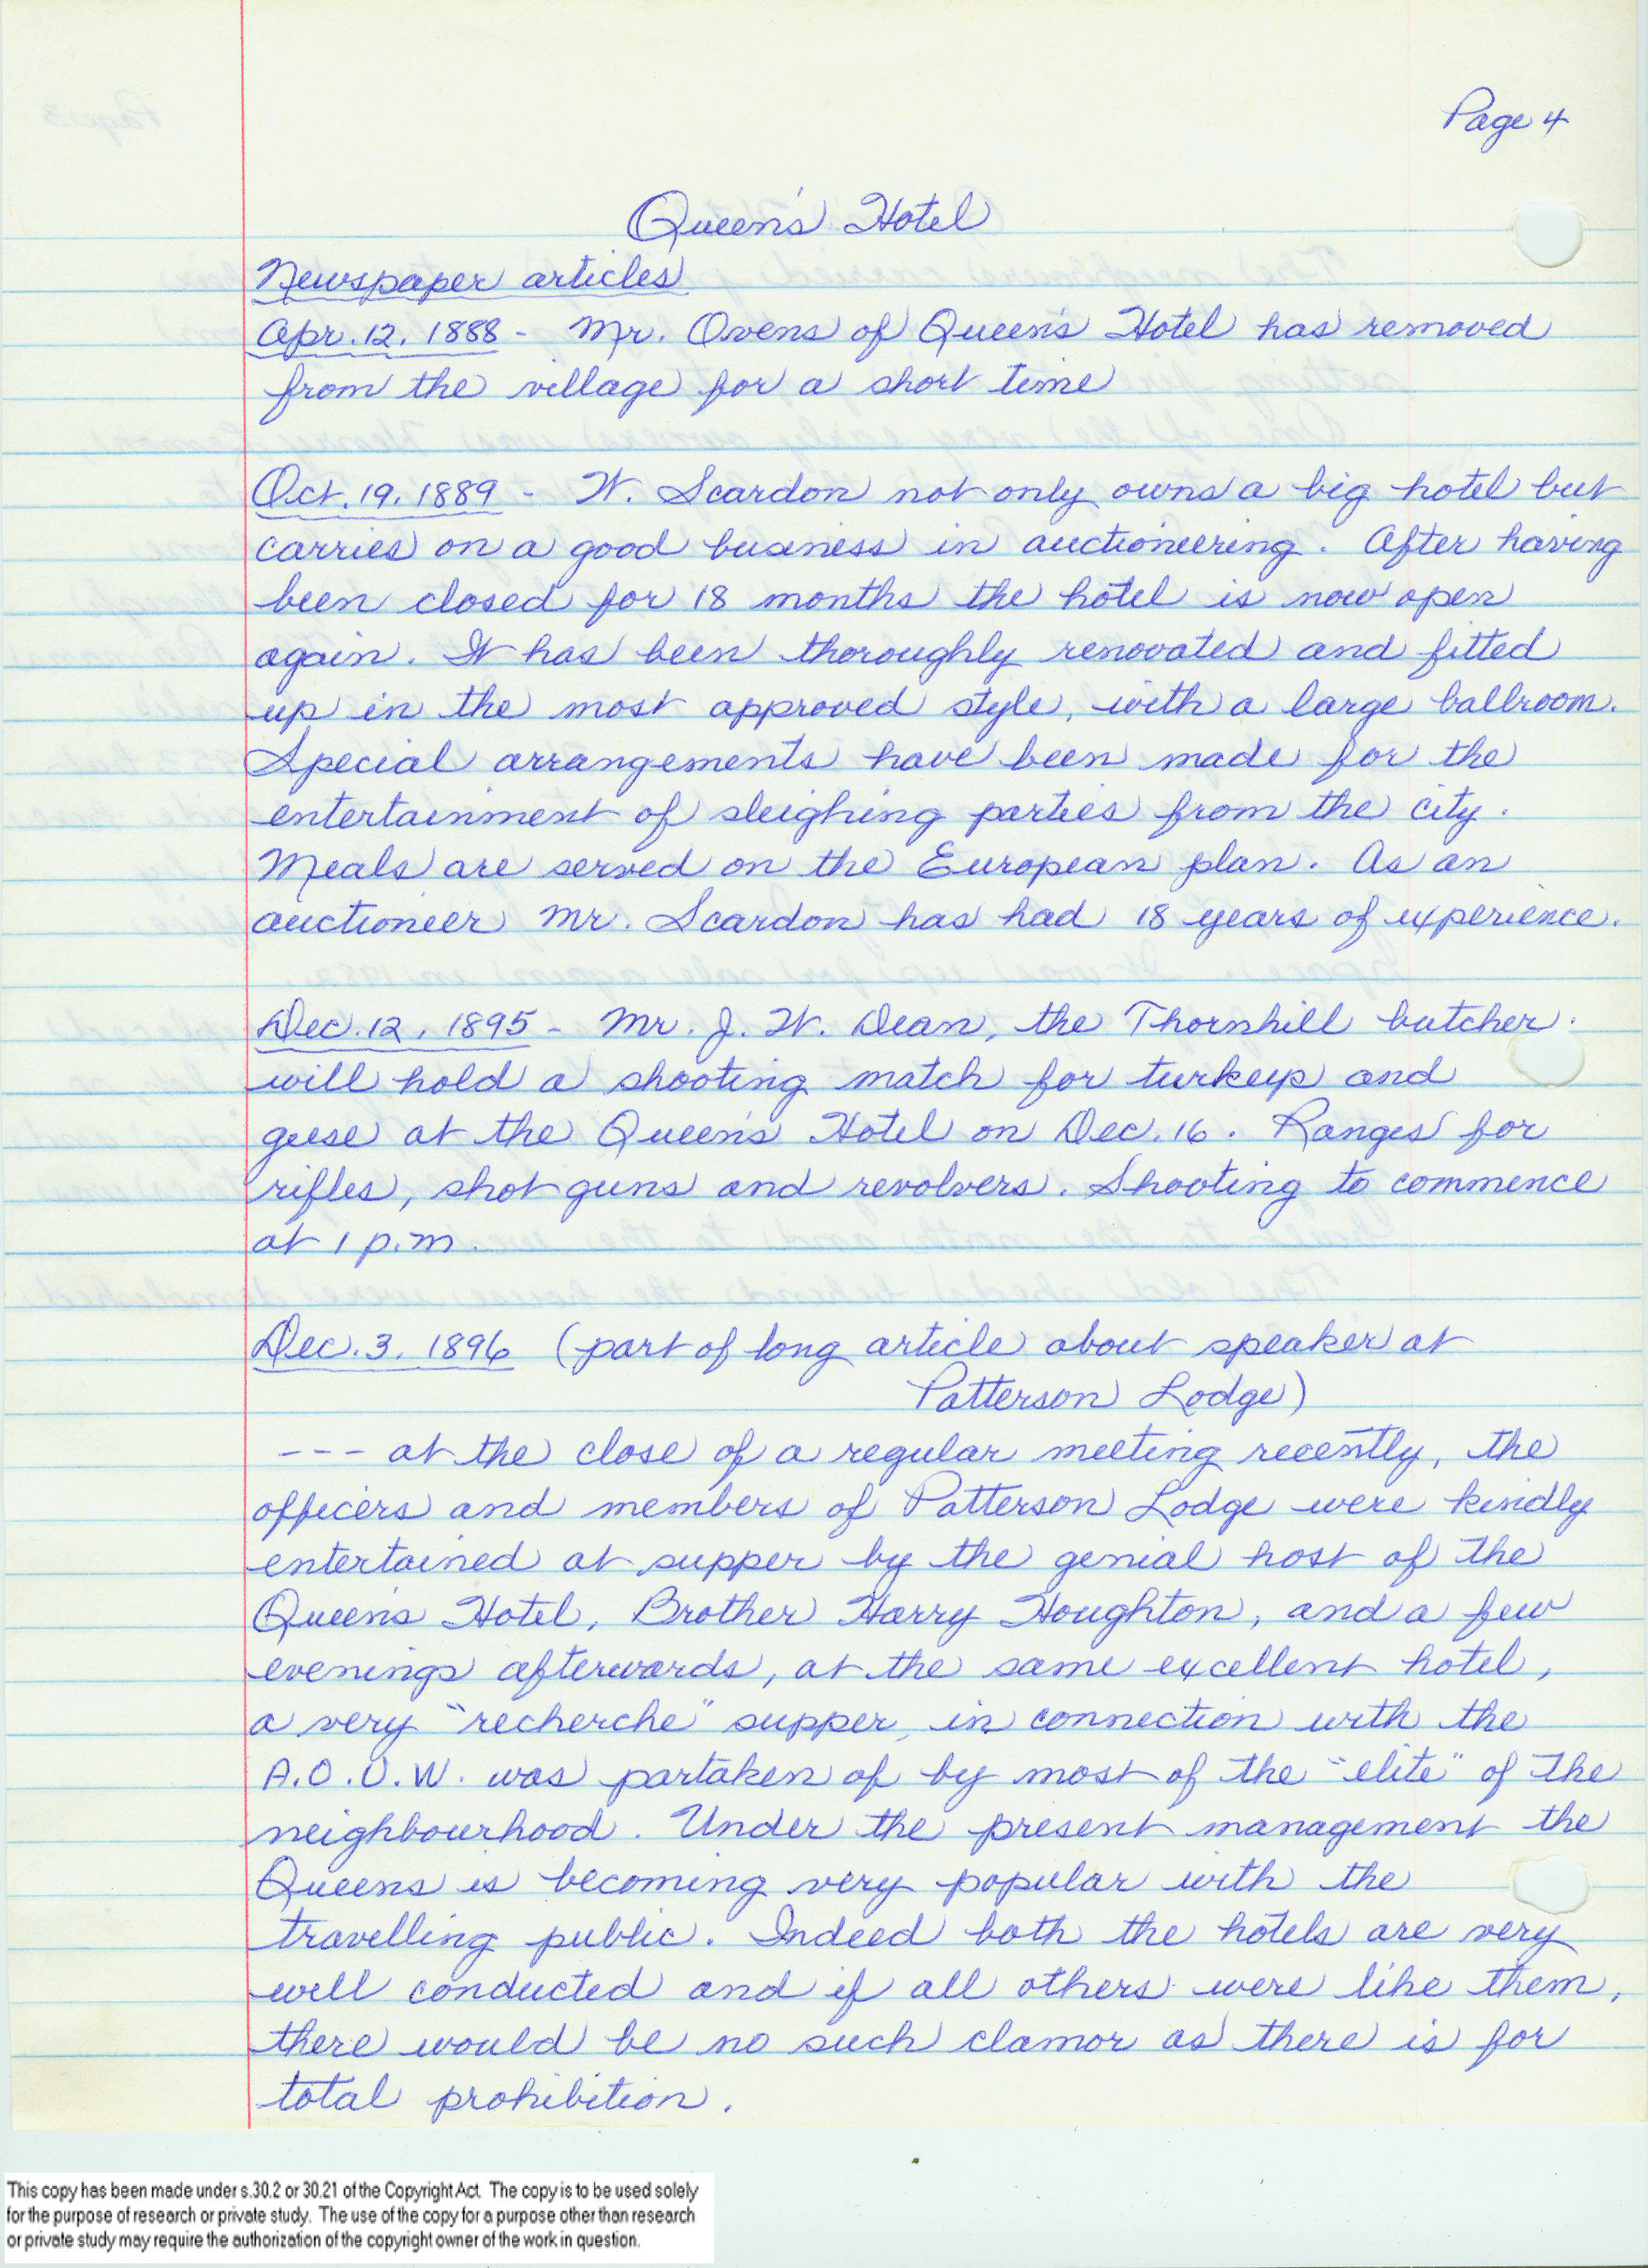 Page 4
Queen's Hotel
Newspaper articles
Apr. 12, 1888 - Mr. Ovens of Queen's Hotel has removed
from the village for a short time
Oct. 19, 1889 - W. Scardon not only owns a big hotel but
carries on a good business in auctioneering. After having
been closed for 18 months the hotel is now open
again. It has been thoroughly renovated and fitted
up in the most approved style, with a large ballroom.
Special arrangements have been made for the
entertainment of sleighing parties from the city.
Meals are served on the European plan. As an
auctioneer Mr. Scardon has had 18 years of experience.
Dec. 12, 1895 - Mr. J. W. Dean, the Thornhill butcher.
will hold a shooting match for turkeys and
geese at the Queen's Hotel on Dec. 16. Ranges for
rifles, shot guns and revolvers. Shooting to commence
at 1 p.m.
Dec. 3, 1896 (part of long article about speaker at
Patterson Lodge)
--- at the close of a regular meeting recently, the
officers and members of Patterson Lodge were kindly
entertained at supper by the genial host of the
Queens Hotel, Brother Harry Houghton, and a few
evenings afterwards, at the same excellent hotel,
a very "recherche" supper, in connection with the
A.O.U.W. was partaken of by most of the "elite" of the
neighbourhood. Under the present management the
Queens is becoming very popular with the
travelling public. Indeed both the hotels are very
well conducted and if all others were like them,
there would be no such clamor as there is for
total prohibition.
This copy has been made under s.30.2 or 30.21 of the Copyright Act. The copy is to be used solely
for the purpose of research or private study. The use of the copy for a purpose other than research
or private study may require the authorization of the copyright owner of the work in question.